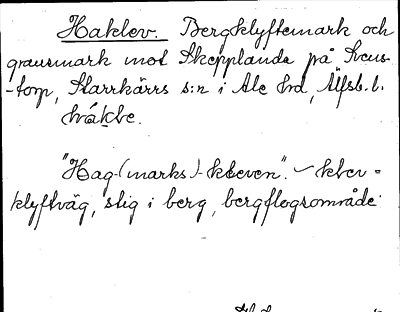 Haklev. Bergklyftemark och
gransmark mot Skepplanda på Svens-
-torp, Starrkärrs s:n i Ale hd, Älfsb. l.
"Hag-(marks)-kleven". – klev =
klyftväg, stig i berg, bergflogsområde